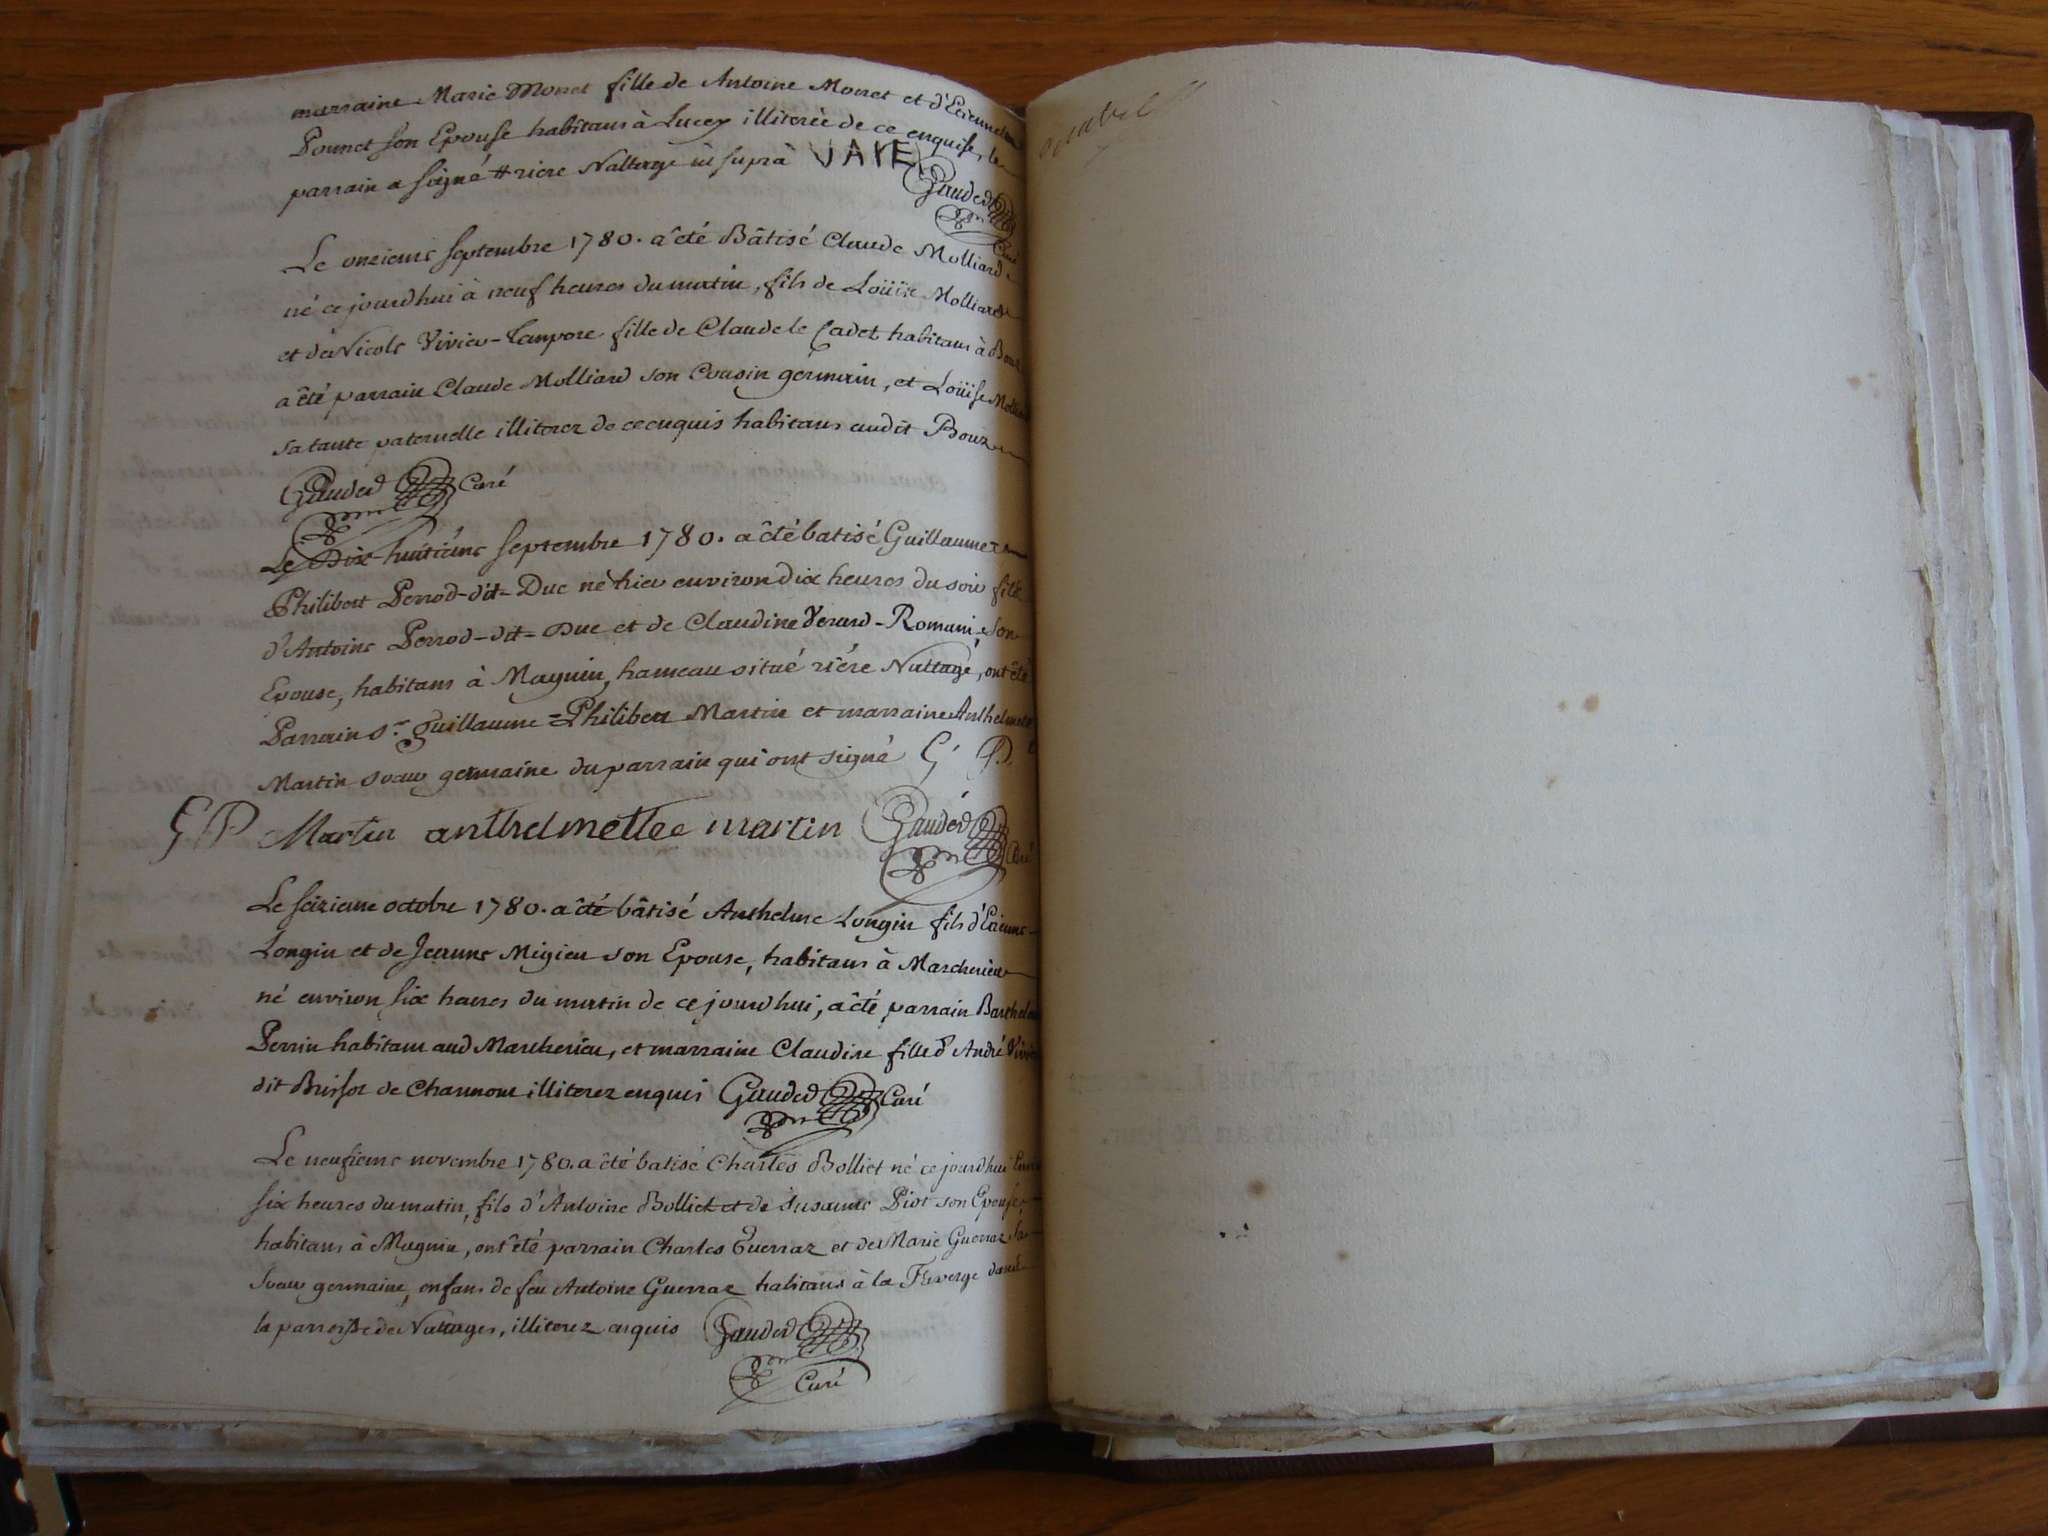 marraine Marie Monet fille de Antoine Monet et d'Etiennette
Pounet son Epouse habitans à Lucey illiterée de ce enquise, le
parrain a signé # riere Nattage ut suprà VAYE
Gauded
Curé
Le onzieme septembre 1780. a êté Bâtisé Claude Molliard
né ce jourdhui à neuf heures du matin, fils de Loüis Molliard
et de Nicole Vivier-Lanpore fille de Claude le Cadet habitans à Bouz
a êté parrain Claude Molliard son Cousin germain, et Loüise Molliard
sa tante paternelle illiterez de ce enquis habitans audit Bouz
Gauded Curé
Le Dix-huitiéme septembre 1780. a êté batisé Guillaume
Philibert Perrod-dit-Duc né hier environ dix heures du soir fils
d'Antoine Perrod-dit-Duc et de Claudine Verard-Romani son
Epouse, habitans à Magnin, hameau situé riére Nattage, ont êté
Parrain Sr. Guillaume=Philibert Martin et marraine Anthelmette
Martin soeur germaine du parrain qui ont signé G P
G P Martin anthelmette martin Gauded
Curé
Le seizieme octobre 1780. a êté bâtisé Anthelme Longin fils d'Etienne
Longin et de Jeanne Migieu son Epouse, habitans à Marcherieu
né environ six heures du matin de ce jourdhui, a êté parrain Barthelemi
Perrin habitant aud Marcherieu, et marraine Claudine fille d'André Vivier
dit Buissot de Channour illiterez enquis Gauded Curé
Le neufieme novembre 1780. a êté batisé Charles Bolliet né ce jourdhui
six heures du matin, fils d'Antoine Bolliet et de Susanne Piot son Epouse,
habitans à Magnin, ont êté parrain Charles Guerraz et de Marie Guerraz sa
soeur germaine, enfans de feu Antoine Guerraz habitans à la Faverge dans
la parroisse de Nattages, illiterez enquis Gauded
Curé